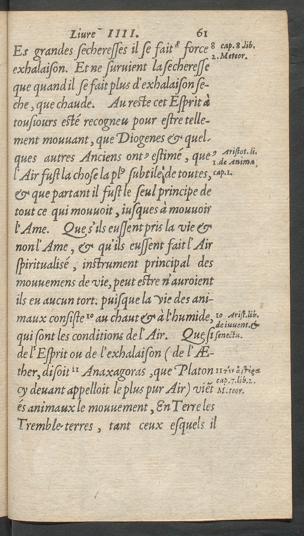 Liure IIII. 61
Es grandes secheresses il se fait 8 force
exhalaison. Et ne suruient la secheresse
que quand il se fait plus d'exhalaison se-
che, que chaude. Au reste cet Esprit à
tousiours esté recogneu pour estre telle-
ment mouuant, que Diogenes & quel-
ques autres Anciens ont 9 estimé, que
l'Air fust la chose la plus subtile de toutes,
& que partant il fust le seul principe de
tout ce qui mouuoit, iusques à mouuoir
l'Ame. Que s'ils eussent pris la vie &
non l'Ame, & qu'ils eussent fait l'Air
spiritualisé, instrument principal des
mouuemens de vie, peut estre n'auroient
ils eu aucun tort. puisque la vie des ani-
maux consiste 10 au chaut & à l'humide,
qui sont les conditions de l'Air. Que si
de l'Esprit ou de l'exhalaison (de l'Æ-
ther, disoit 11 Anaxagoras, que Platon
cy deuant appelloit le plus pur Air) viẽt
és animaux le mouuement, En Terre les
Tremble-terres, tant ceux esquels il
8 cap. 8. lib.
2. Meteor.
9 Aristot. li.
1. de Anima,
cap. 1.
10 Arist. lib.
de iuuent. &
senectu.
cap. 7. lib. 2.
Meteor.